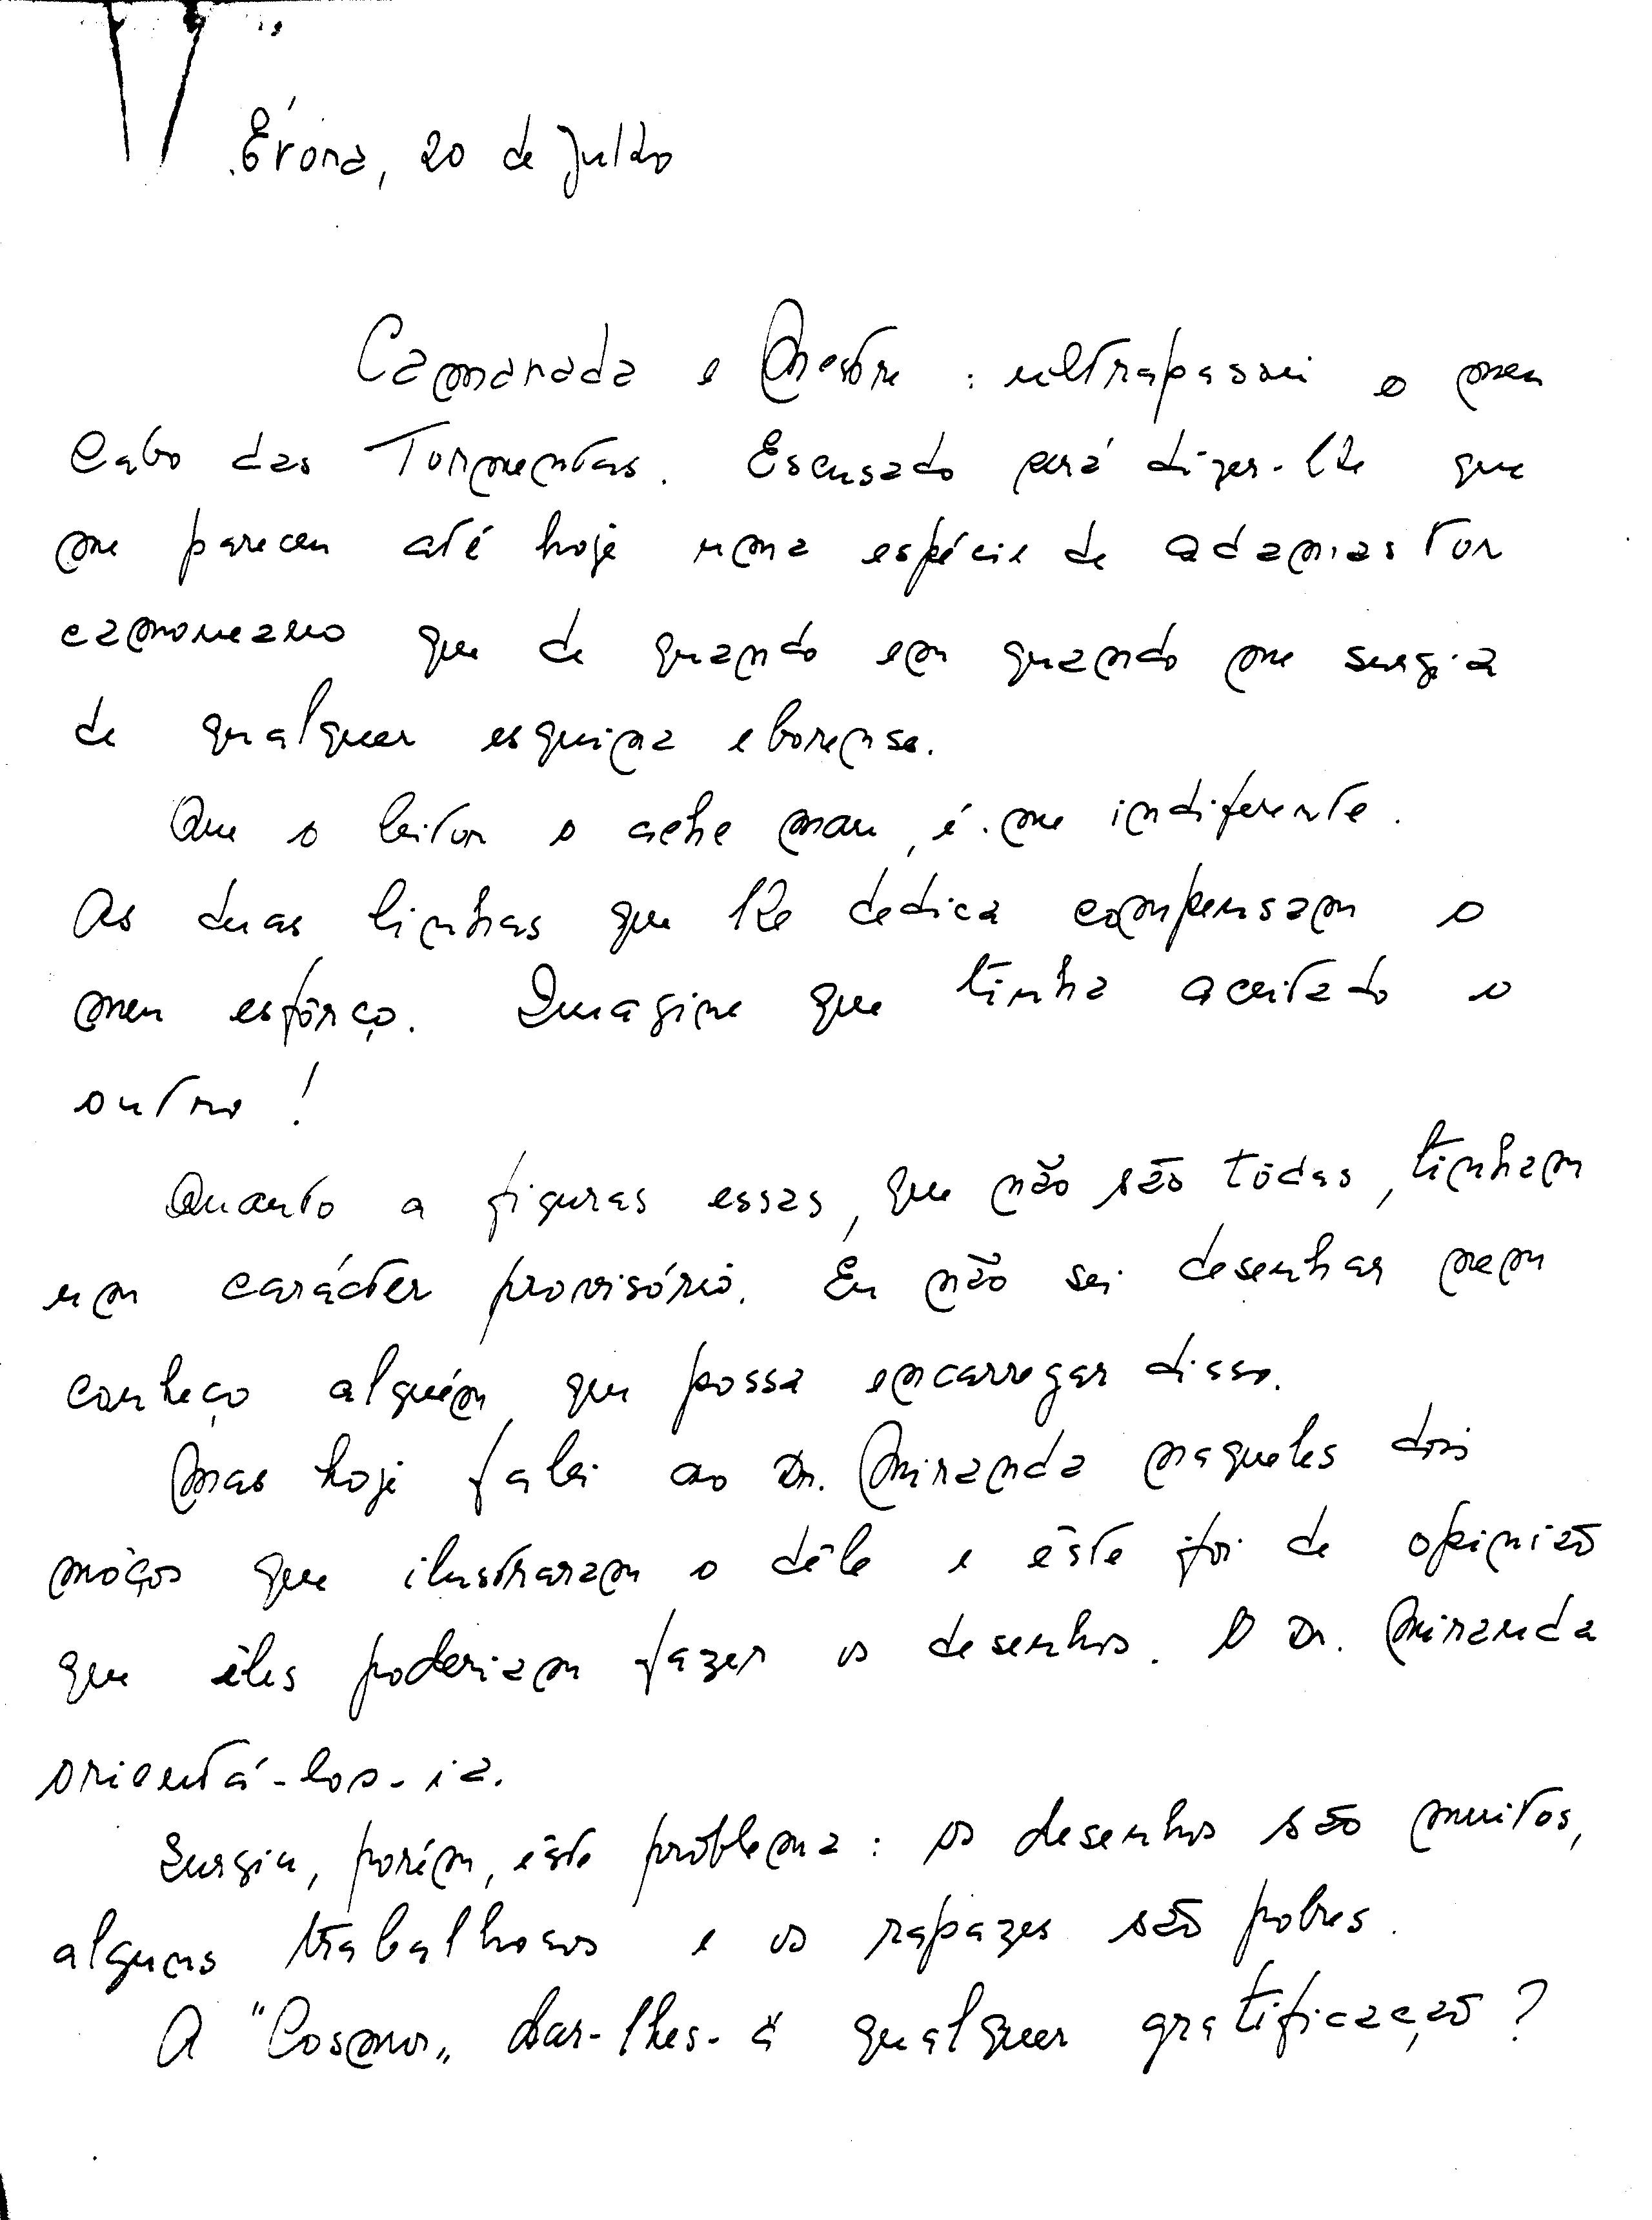 Évora, 20 de Julho
Camarada e Mestre: ultrapassei o meu
Cabo das Tormentas. Escusado será dizer-lhe que
me pareceu até hoje uma espécie de adamastor
camoneano que de quando em quando me surgia
de qualquer esquina eborense.
Que o leitor o ache mau, é-me indiferente.
As duas linhas que lhe dedica compensam o
meu esfôrço. Imagine que tinha aceitado o
outro!
Quanto a figuras essas, que não são tôdas, tinham
um carácter provisório. Eu não sei desenhar nem
conheço alguém que possa encarregar disso.
Mas hoje falei ao Dr. Miranda naqueles dois
môços que ilustraram o dêle e êste foi de opinião
que êles poderiam fazer os desenhos. O Dr. Miranda
orientá-los-ia.
Surgiu, porém, êste problema: os desenhos são muitos,
alguns trabalhosos e os rapazes são pobres.
A "Cosmos" dar-lhes-á qualquer gratificação?